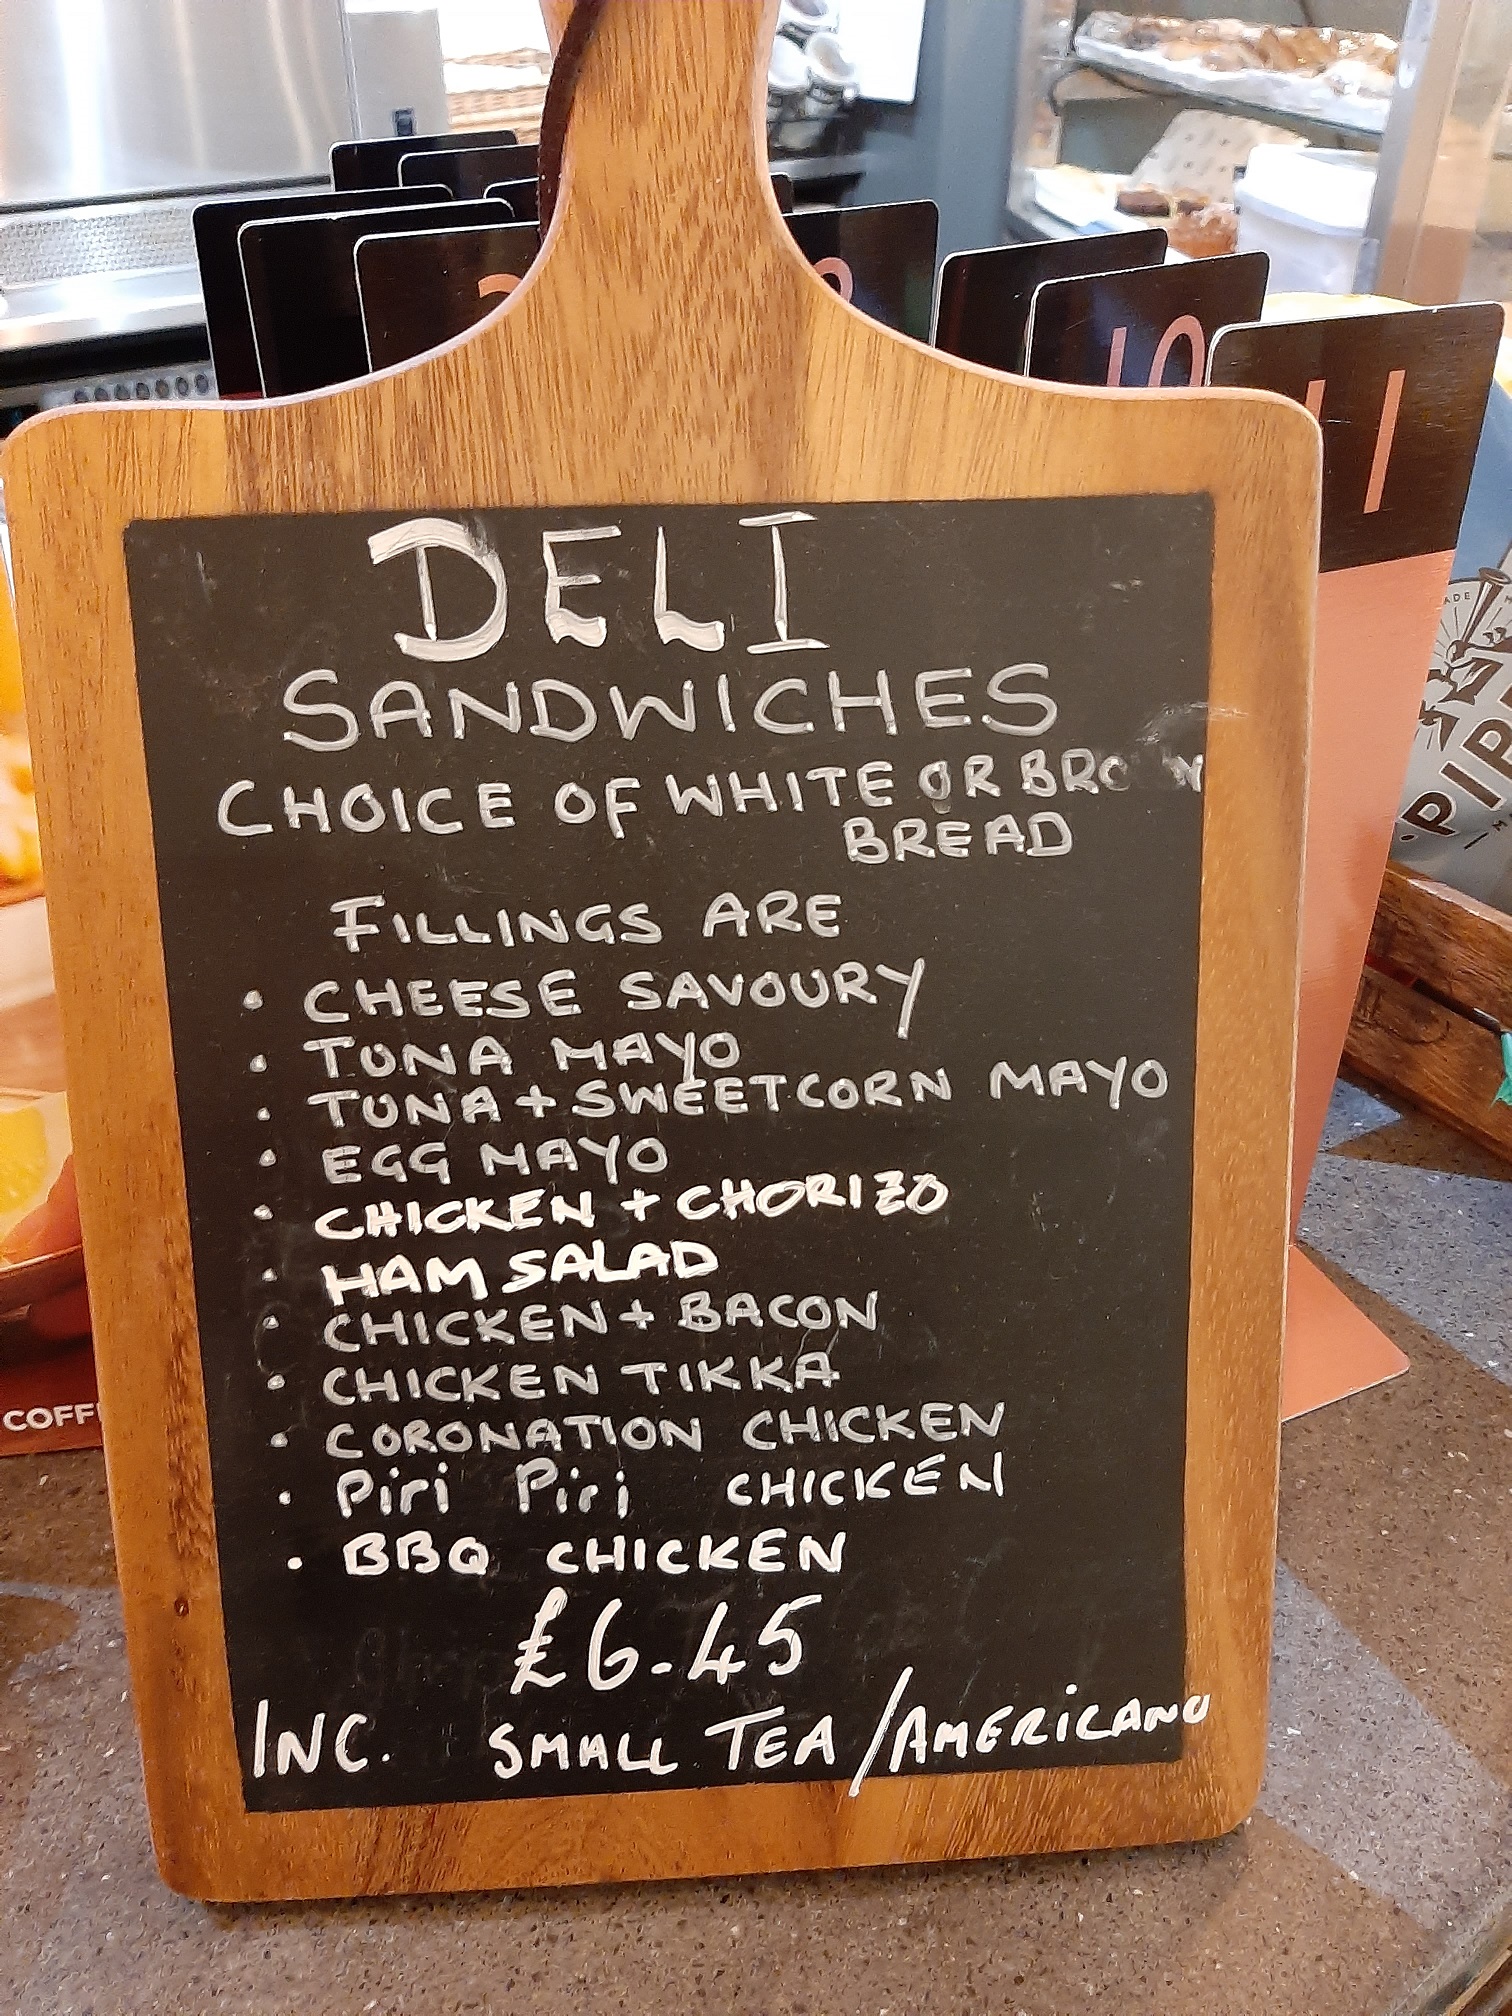 10
11
DELI
SANDWICHES
CHOICE OF WHITE OR BROWN
BREAD
FILLINGS ARE
• CHEESE SAVOURY
• TUNA MAYO
• TUNA + SWEETCORN MAYO
• EGG MAYO
• CHICKEN + CHORIZO
• HAM SALAD
• CHICKEN + BACON
• CHICKEN TIKKA
• CORONATION CHICKEN
• Piri Piri CHICKEN
• BBQ CHICKEN
£6.45
INC. SMALL TEA / AMERICANO